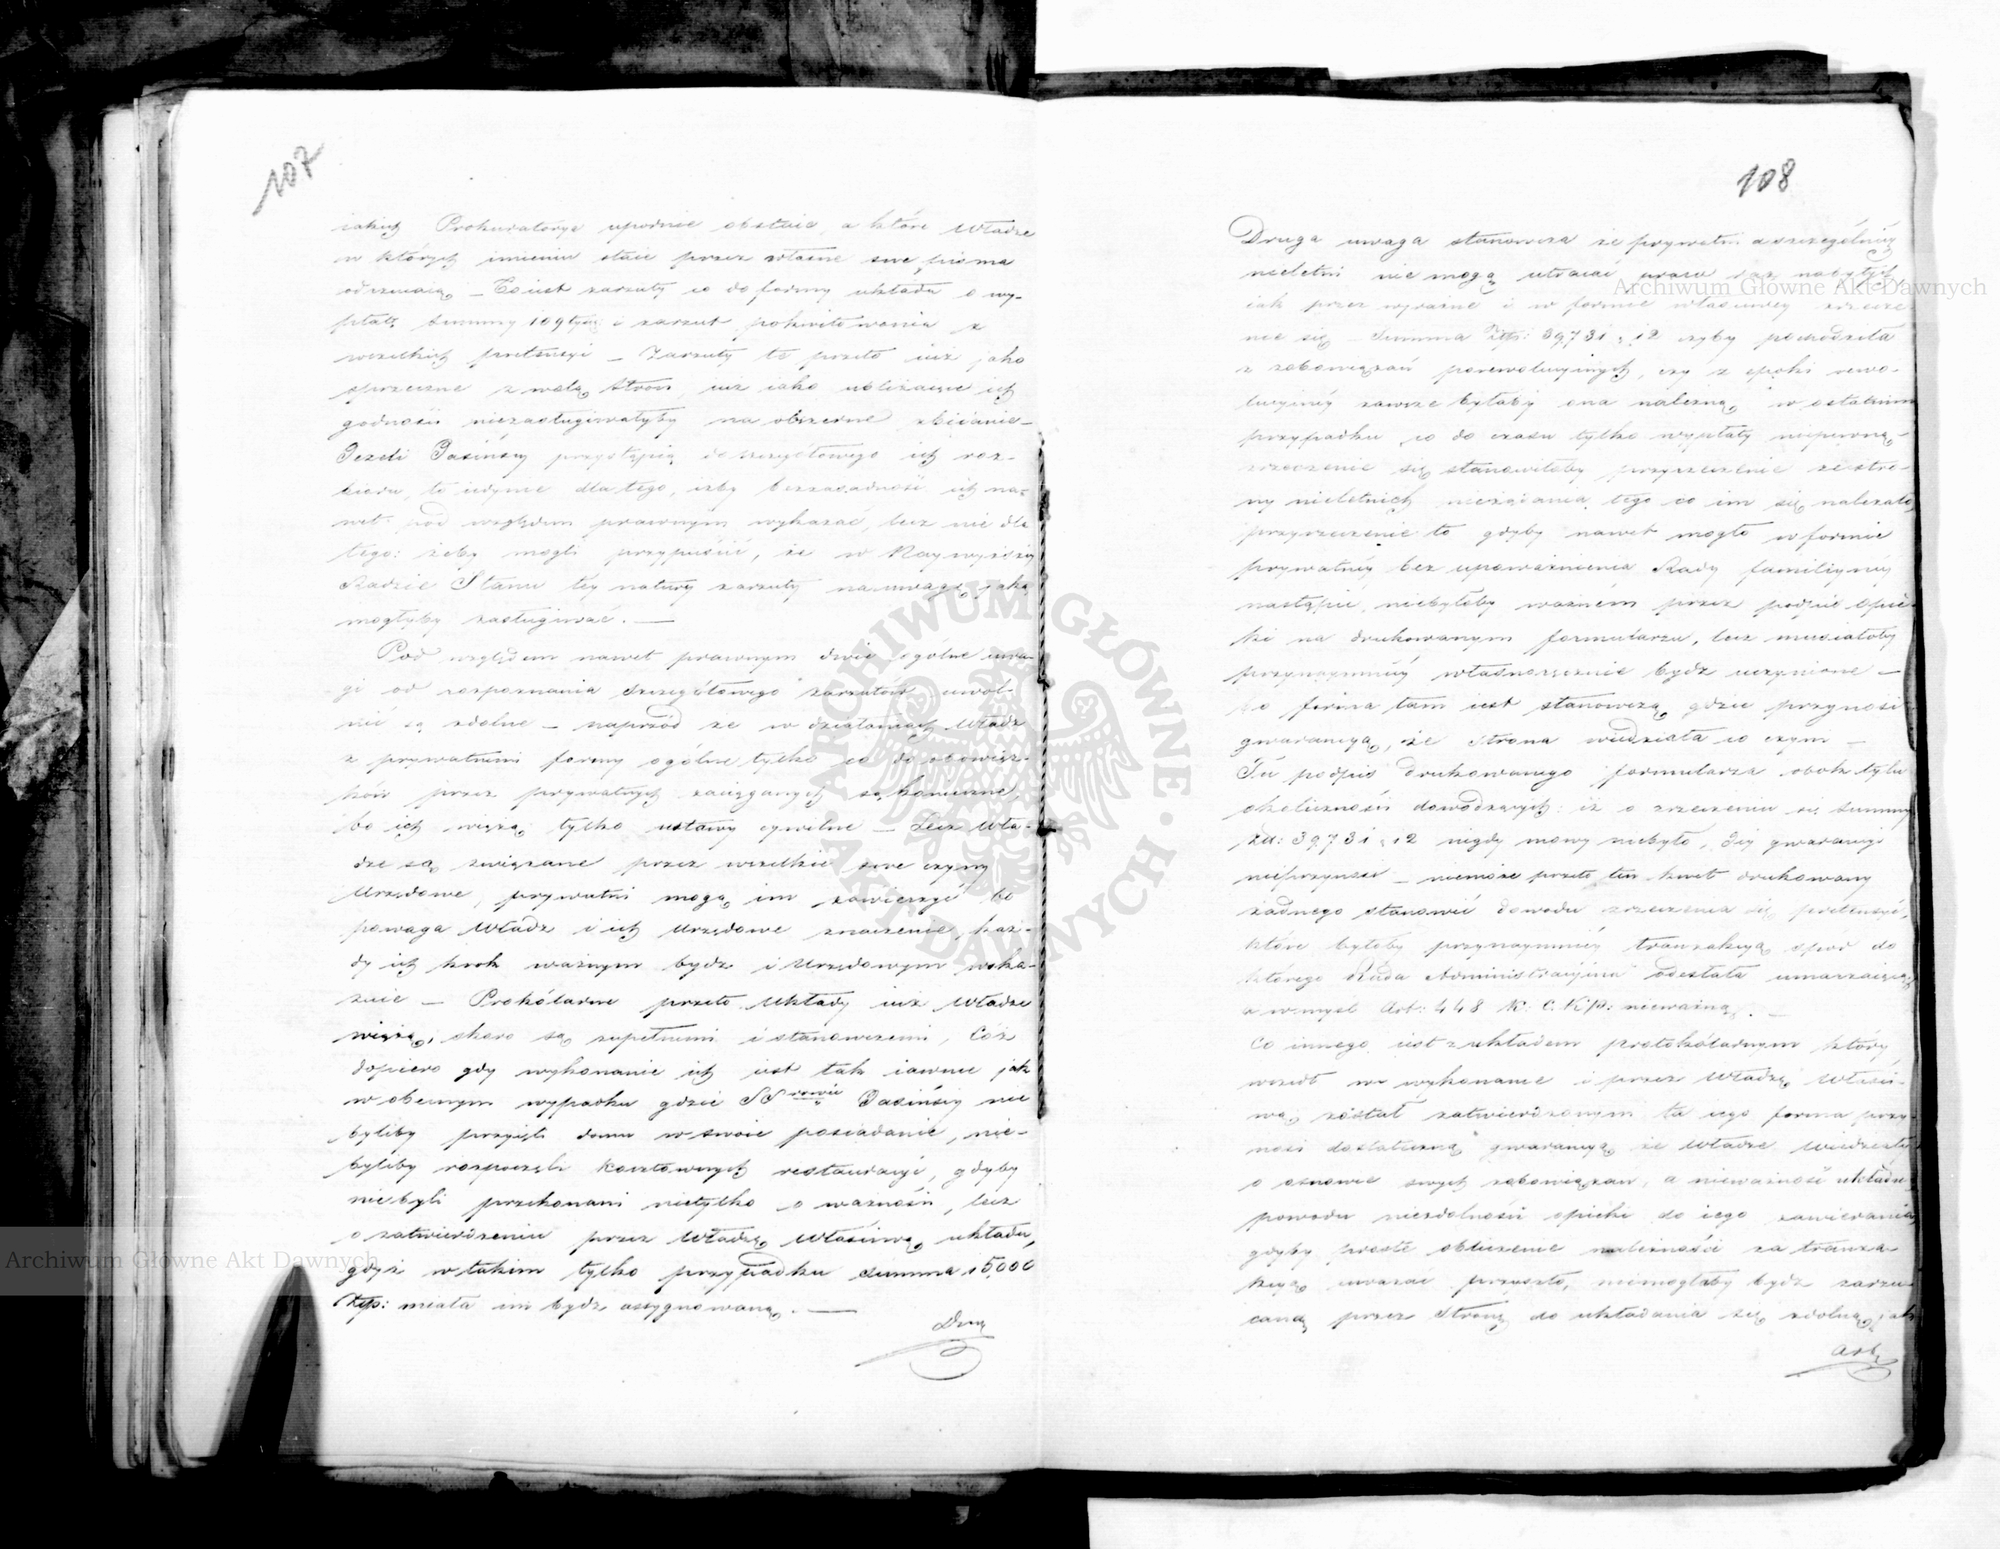 107
iakich Prokuratorya upornie obstaie, a które Władze
w których imieniu staie przez własne swe pisma
odrzucaią – To iest zarzuty co do formy układu o wy-
płatę summy 109 tysię: i zarzut pokwitowania z
wszelkich pretensyi – Zarzuty te przeto iuż jako
sprzeczne z wolą stron, iuż iako ubliżaiące ich
godności niezasługiwałyby na obszerne zbiianie –
Jeżeli Jasińscy przystąpią do szczegółowego ich roz-
bioru, to iedynie dla tego, iżby bezzasadność ich na-
wet pod względem prawnym wykazać, lecz nie dla
tego: żeby mogli przypuścić, że w Naywyższey
Radzie Stanu tey natury zarzuty na uwagę jaką
mogłyby zasługiwać. –
Pod względem nawet prawnym dwie ogólne uwa-
gi od rozpoznania szczegółowego zarzutów uwol-
nić są zdolne – naprzód że w działaniach Władz
z prywatnemi formy ogólne tylko co do obowiąz-
ków przez prywatnych zaciąganych są konieczne,
bo ich wiążą tylko ustawy cywilne – Lecz Wła-
dze są związane przez wszelkie swe czyny
Urzędowe, prywatni mogą im zawierzyć bo
powaga Władz i ich Urzędowe znaczenie, każ-
dy ich krok ważnym bydź i Urzędowym wska-
zuie – Protokólarne przeto układy iuż Władze
wiążą, skoro są zupełnemi i stanowczemi, Cóż
dopiero gdy wykonanie ich iest tak iawne jak
w obecnym wypadku gdzie SSrowie Jasińscy nie
byliby przyięli domu w swoie posiadanie, nie-
byliby rozpoczęli kosztownych restauracyi, gdyby
niebyli przekonani nietylko o ważności, lecz
o zatwierdzeniu przez Władzę Właściwą układu,
gdyż w takim tylko przypadku summa 15,000
Złp: miała im bydź assygnowaną. –
Dru
108
Druga uwaga stanowcza że prywatni a szczególniey
nieletni nie mogą utracać praw raz nabytych
iak przez wyraźne i w formie właściwey zrzecze-
nie się – Summa Złp: 39731 „ 12 czyby pochodziła
z zobowiązań porewolucyinych, czy z epoki rewo-
lucyiney zawsze byłaby ona należną, w ostatnim
przypadku co do czasu tylko wypłaty niepewną –
zrzeczenie się stanowiłoby przyrzeczenie ze stro-
ny nieletnich nieżądania tego co im się należało
przyrzeczenie to gdyby nawet mogło w formie
prywatney bez upoważnienia Rady familiyney
nastąpić, niebyłoby ważnem przez podpis Opie-
ki na drukowanym formularzu, lecz musiałoby
przynaymniey własnoręcznie bydź uczynione –
bo forma tam iest stanowczą gdzie przynosi
gwarancyą, że Strona wiedziała co czyni –
Tu podpis drukowanego formularza obok tylu
okoliczności dowodzących: iż o zrzeczeniu się summy
Złt: 39731 „ 12 nigdy mowy niebyło, tey gwarancyi
nieprzynosi – niemoże przeto ten kwit drukowany
żadnego stanowić dowodu zrzeczenia się pretensyi,
które byłoby przynaymniey tranzakcyą spór do
którego Rada Administracyina odesłała umarzaiącą
a w myśl Art: 448 K: C: K: P: nieważną. –
Co innego iest z układem protokólarnym który
wszedł w wykonanie i przez Władzę Właści-
wą został zatwierdzonym ta iego forma przy-
nosi dostateczną gwarancyą że Władze wiedziały
o osnowie swych zobowiązań, a nieważność układu
powodu niezdolności opieki do iego zawierania
gdyby proste obliczenie należności za tranza-
kcyą uważać przyszło, niemogłaby bydź zarzu-
caną przez Stronę do układania się zdolną, jak
Art
Archiwum Główne Akt Dawnych
Archiwum Główne Akt Dawnych
ARCHIWUM GŁÓWNE AKT DAWNYCH